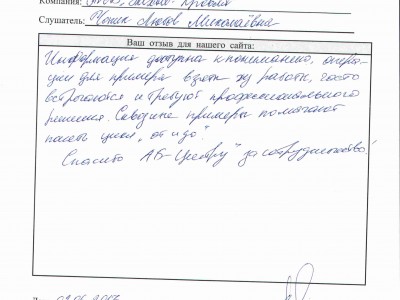 Компания:
Слушатель: Любов Миколаївна
Ваш отзыв для нашего сайта:
Информация доступна к пониманию, опера-
ции для примера взяты из работы, часто
встречаются и требуют профессионального
решения. Сквозные примеры помогают
понять цикл „от и до".
Спасибо АБ-Центру за сотрудничество!